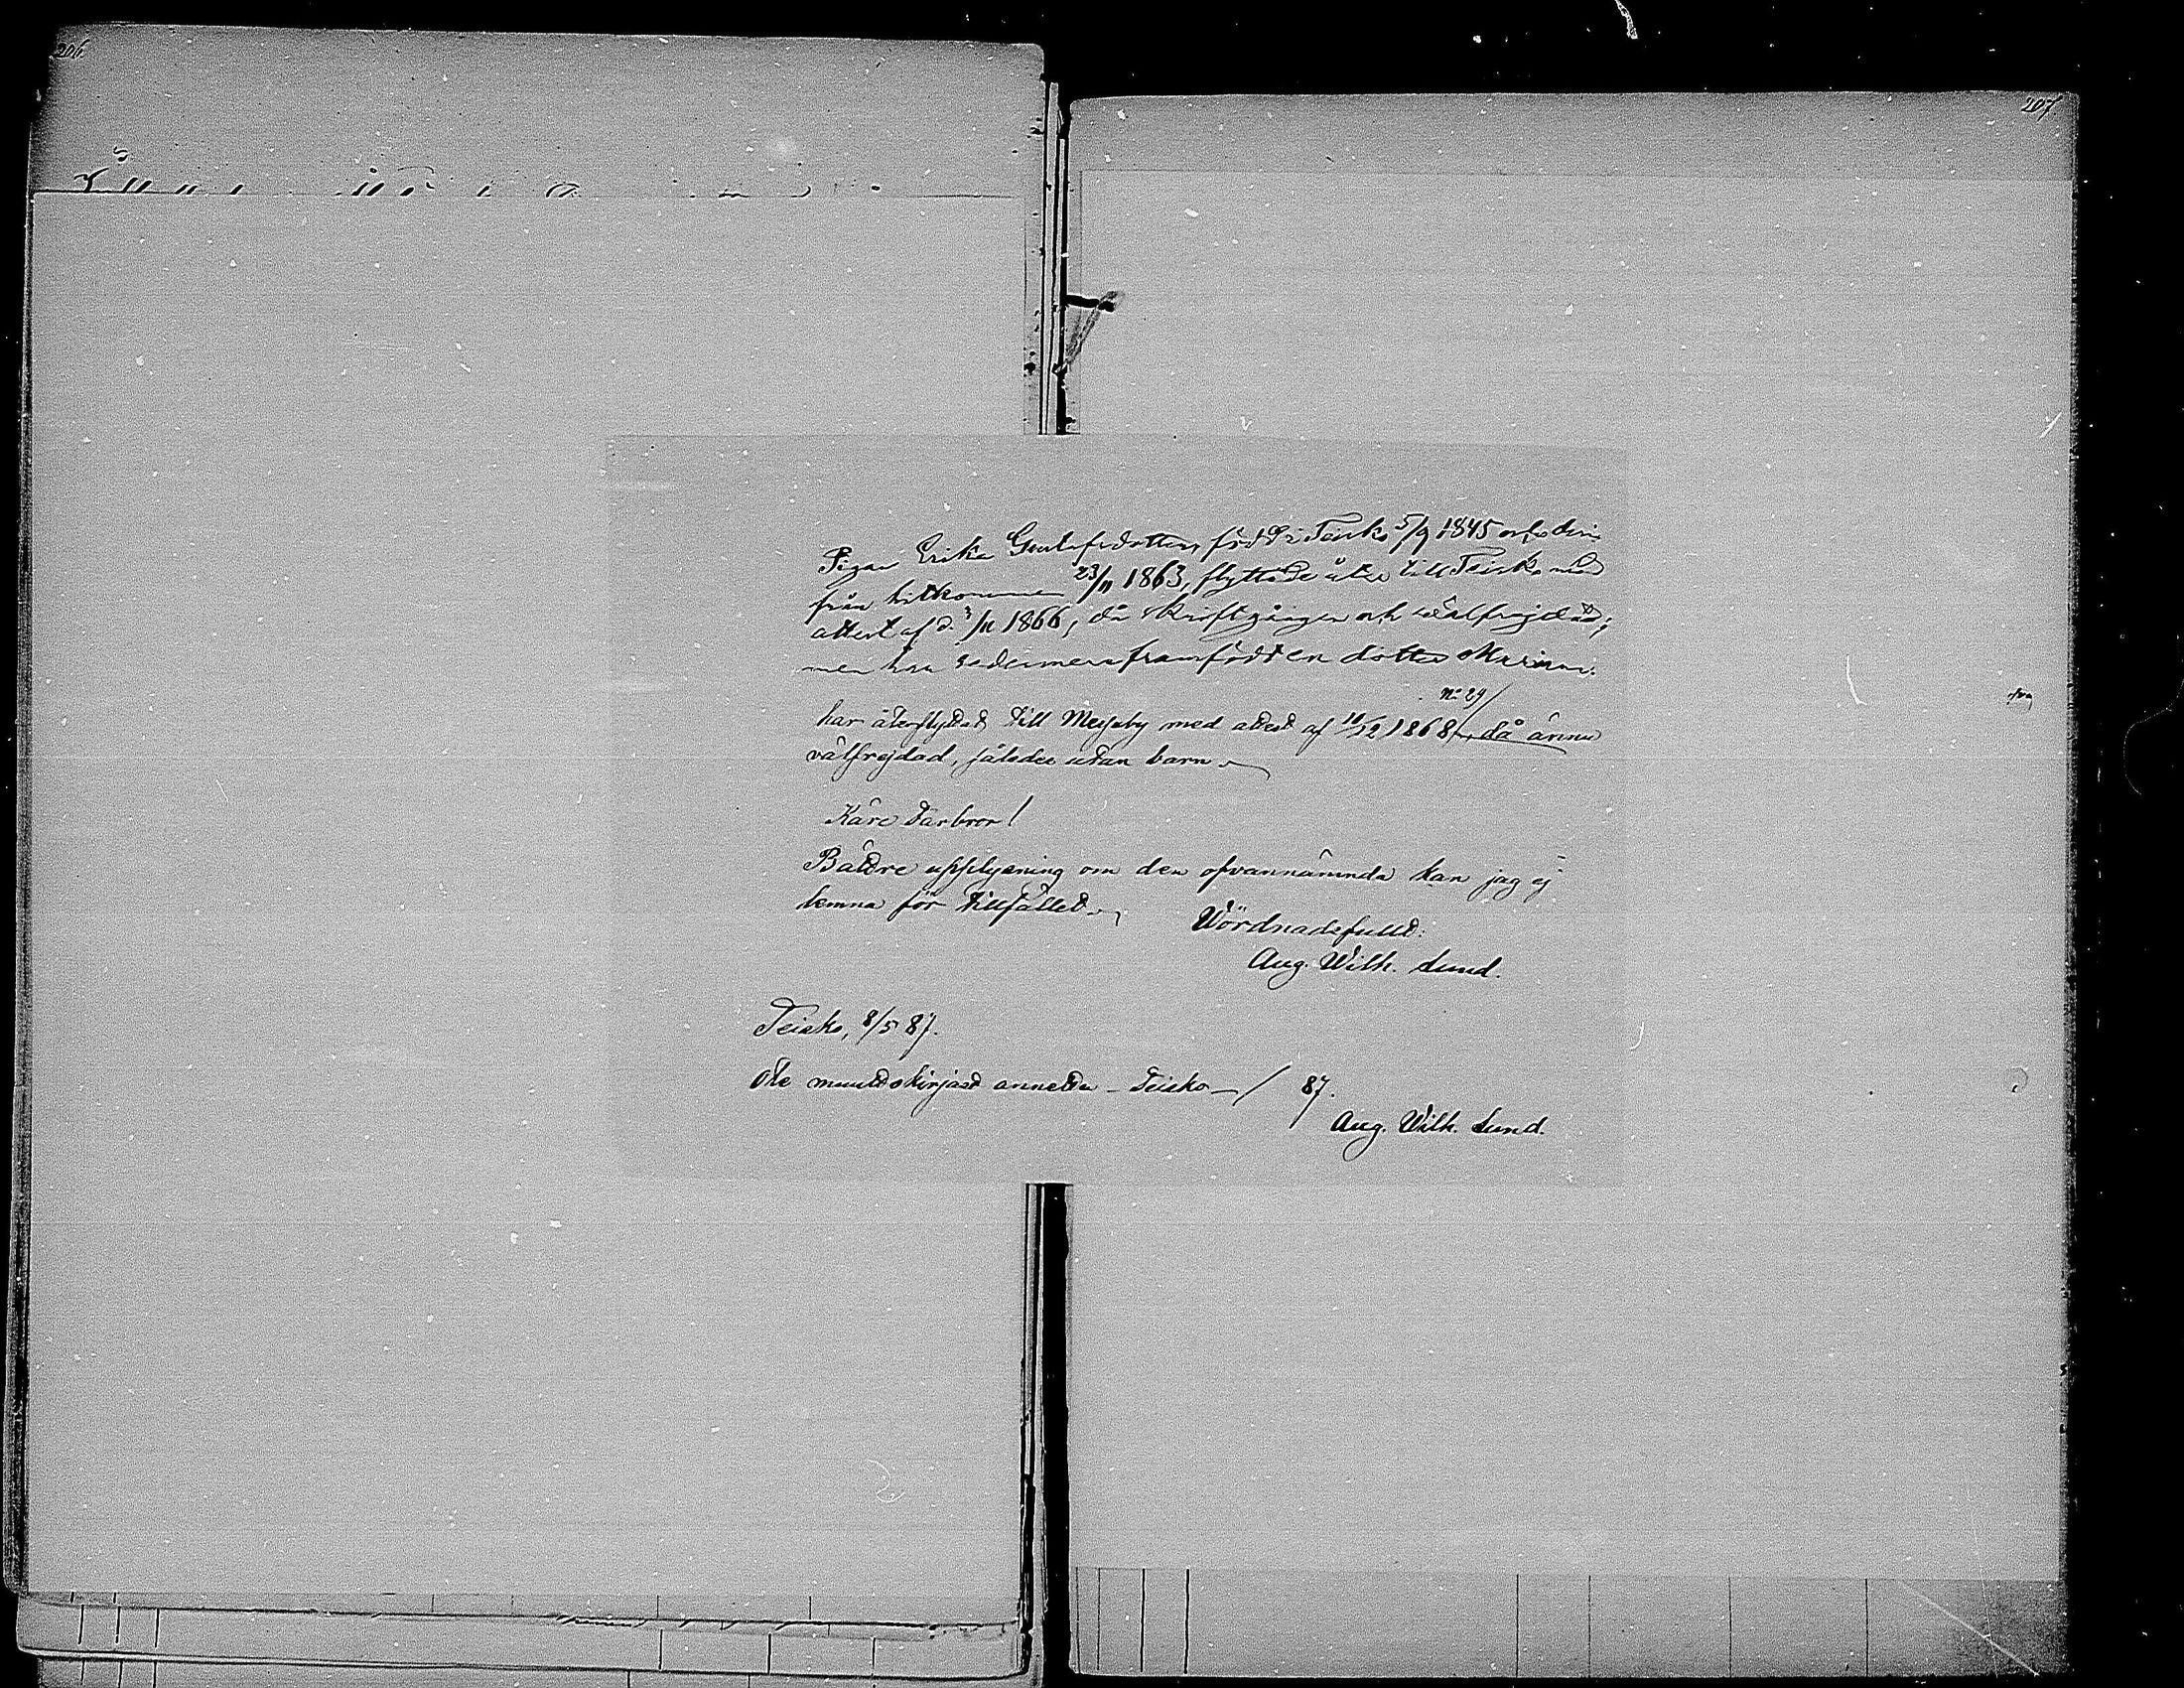 206.
207.
Pigan Erika Gustafsdotter, född i Teisko 5/9 1845 och deri-
från hitkommen 23/11 1863, flyttade åter till Teisko med
attest af d. 3/11 1866, då skriftgången och wälfrejdad;
men har sedermera framfödt en dotter Maria.
No 29
har återflyttat till Messuby med attest af 10/12 1868, då ännu
välfrejdad, således utan barn.
Käre Farbror!
Bättre upplysning om den ofvannämnda kan jag ej
lemna för tillfället.
Wördnadsfullt:
Aug. Wilh. Lund.
Teisko, 8/5 87.
Ote muuttokirjast annettu - Teisko - / 87.
Aug. Wilh. Lund.